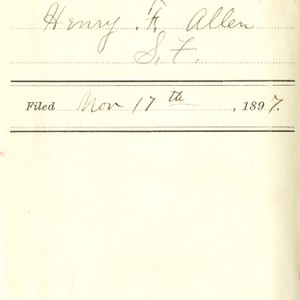 Henry F. Allen
S.F.
Filed Nov 17th, 1897.